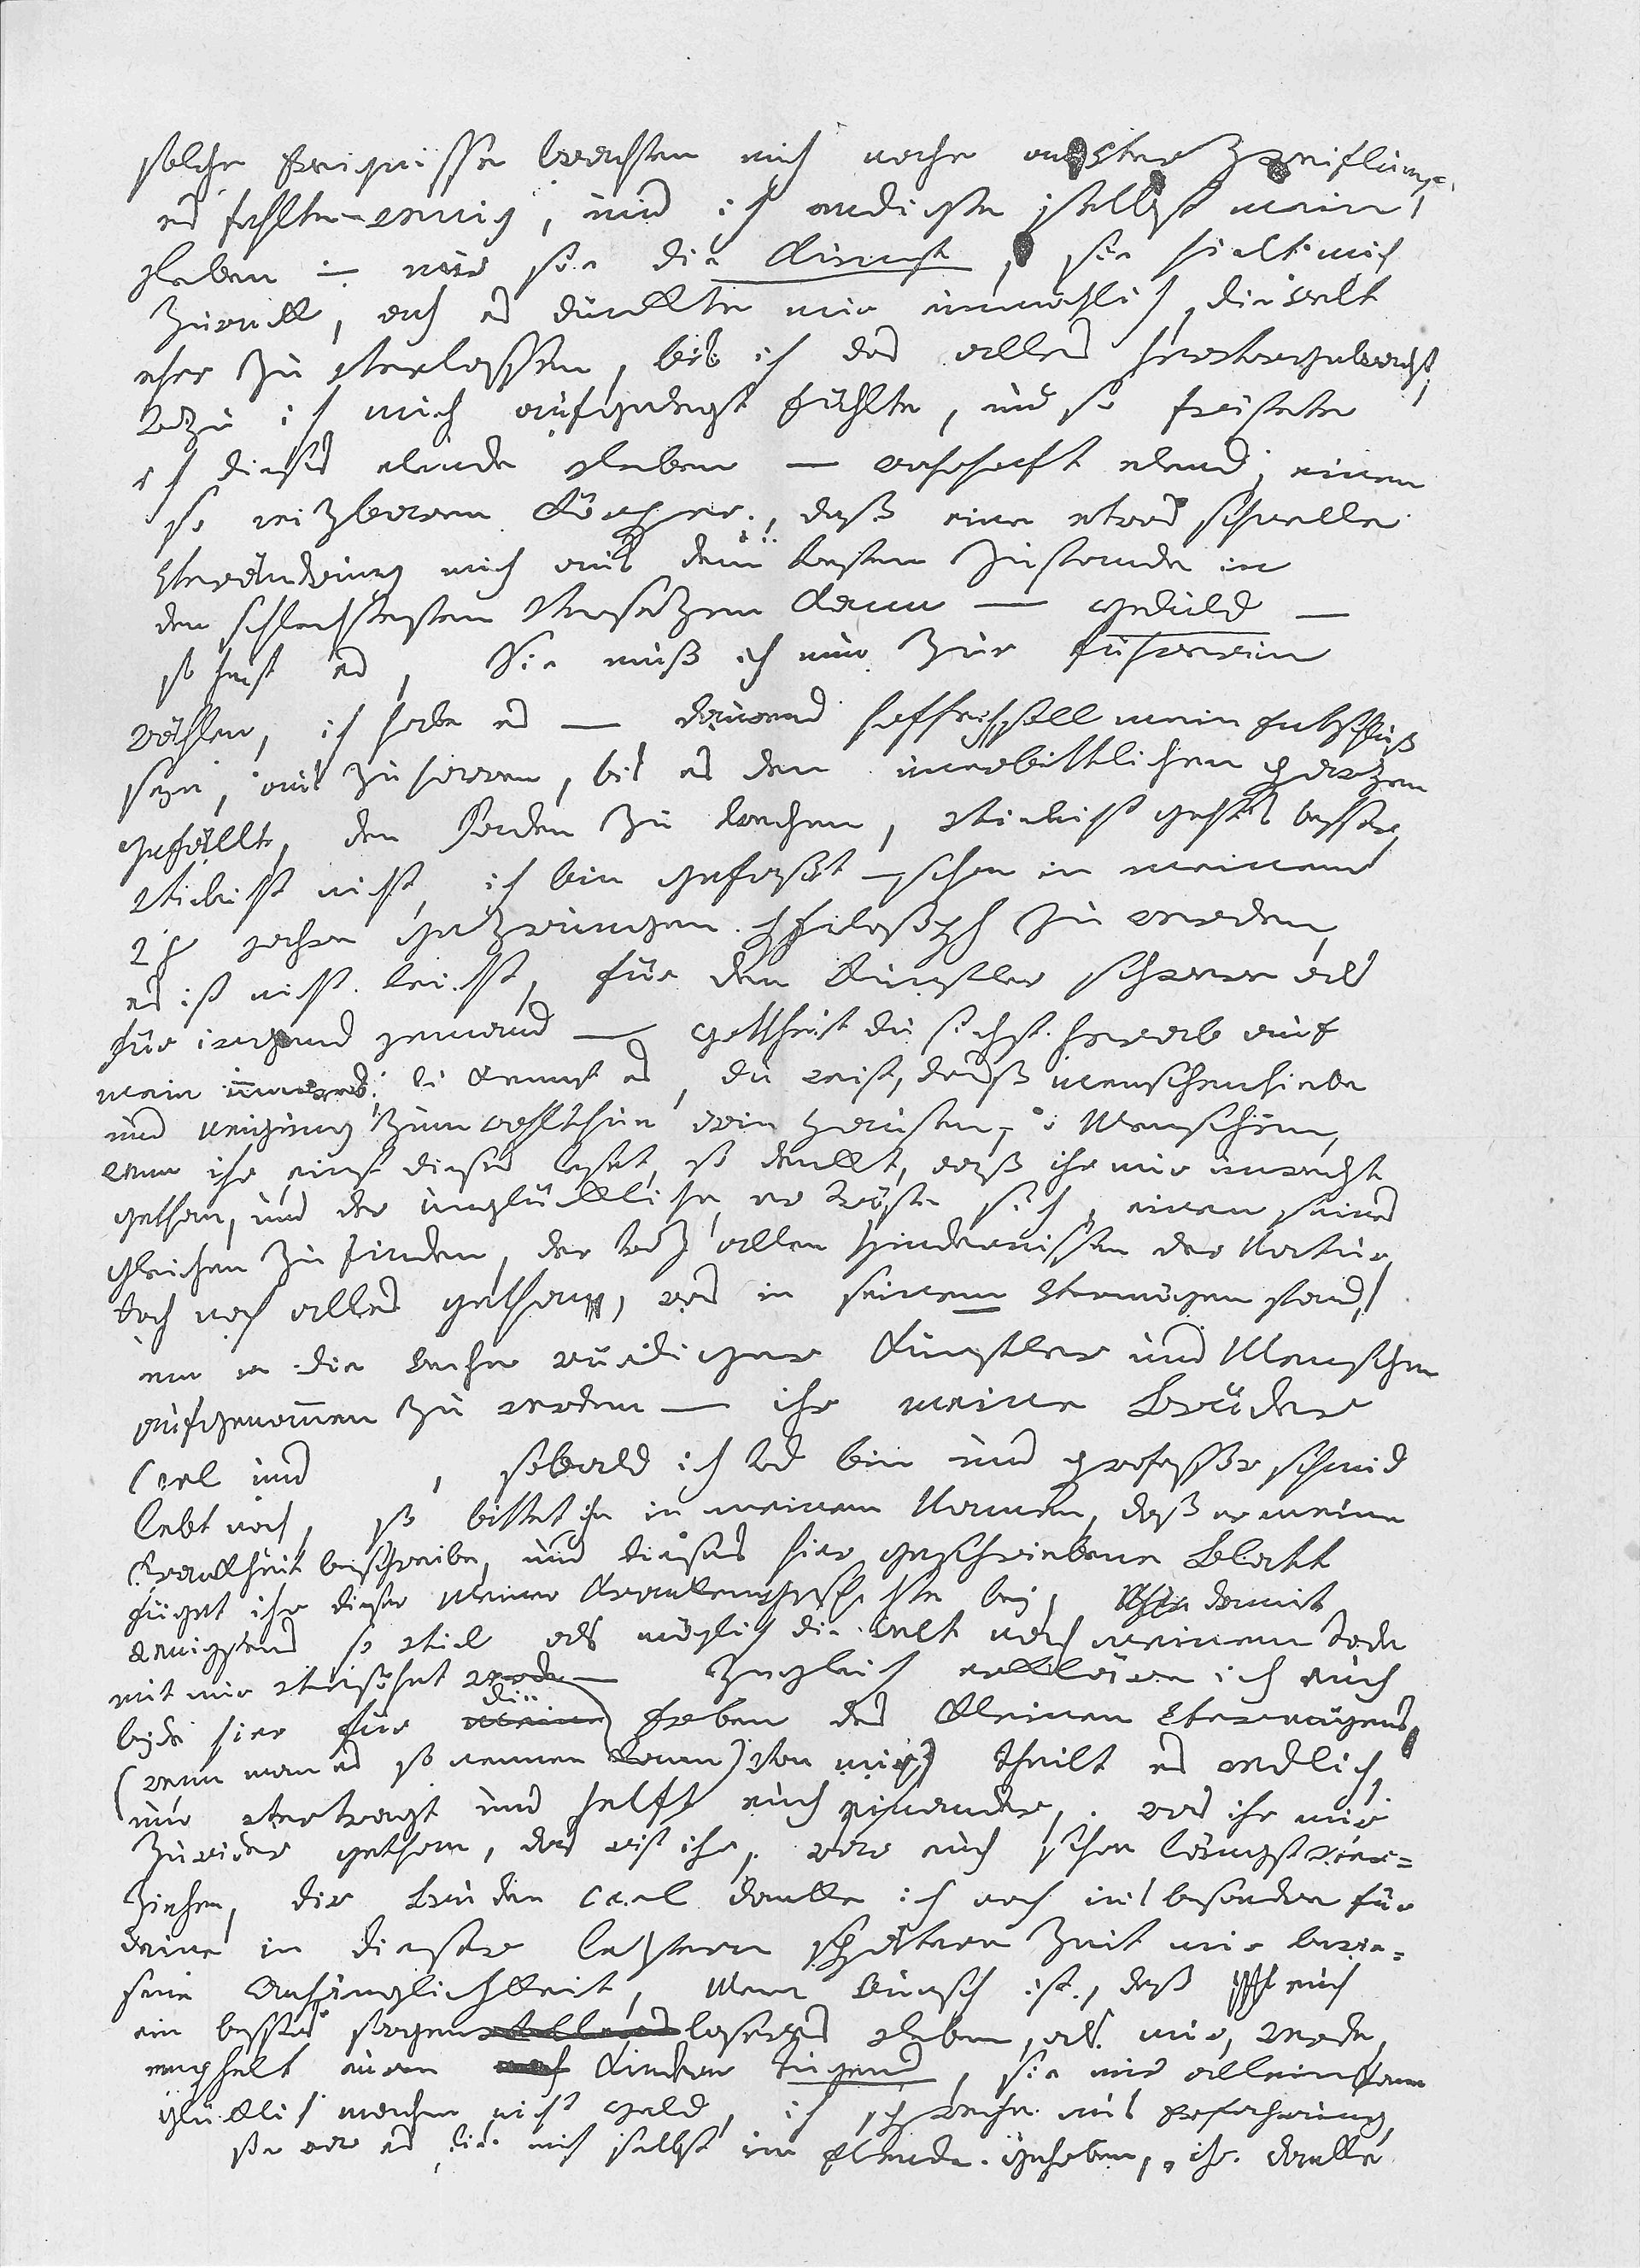 solche Ereignisse brachten mich nahe an Verzweiflung,
es fehlte wenig, und ich endigte selbst mein
Leben — nur sie die Kunst, sie hielt mich
zurück, ach es dünkte mir unmöglich, die Welt
eher zu verlassen, bis ich das alles hervorgebracht,
wozu ich mich aufgelegt fühlte, und so fristete
ich dieses elende Leben — wahrhaft elend; einen
so reizbaren Körper, daß eine etwas schnelle
Veränderung mich aus dem Besten Zustande in
den schlechtesten versezen kann — Geduld —
so heist es, Sie muß ich nun zur führerin
wählen, ich habe es — daurend hoffe ich, soll mein Entschluß
seyn, auszuharren, bis es den unerbittlichen parzen
gefällt, den Faden zu brechen, vieleicht geht's besser,
vieleicht nicht, ich bin gefaßt — schon in meinem
28 Jahre gezwungen Philosoph zu werden,
es ist nicht leicht, für den Künstler schwerer als
für irgend jemand — gottheit du siehst herab auf
mein inneres; du kennst es, du weist, daß menschenliebe
und neigung zum wohlthun drin Hausen, — o Menschen,
wenn ihr einst dieses leset, so denkt, daß ihr mir unrecht
gethan, und der unglückliche, er tröste sich, einen seines
gleichen zu finden, der troz allen Hindernissen der Natur,
doch noch alles gethan, was in seinem Vermögen stand,
um in die Reihe würdiger Künstler und Menschen
aufgenommen zu werden — ihr meine Brüder
Carl und , sobald ich tod bin und professor schmid
lebt noch, so bittet ihn in meinem Namen, daß er meine
Krankheit beschreibe, und dieses hier geschriebene Blatt
füget ihr dieser meiner Krankengeschichte bey, damit
wenigstens so viel als möglich die Welt nach meinem Tode
mit mir versöhnt werde — zugleich erkläre ich euch
beyde hier für meine die Erben des kleinen Vermögens,
(wenn man es so nennen kann) von mir, theilt es redlich,
und vertragt und helft euch einander, was ihr mir
zuwider gethan, das wist ihr, war euch schon längst ver=
ziehen, dir Bruder Carl danke ich noch insbesondre für
deine in dieser leztern spätern Zeit mir bewie=
sene Anhänglichkeit, Mein Wunsch ist, daß euch
ein bessers sorgenloseres Leben, als mir, werde,
emphelt euren nach Kindern Tugend, sie nur allein kann
glücklich machen, nicht Geld, ich spreche aus Erfahrung,
sie war es, die mich selbst im Elende gehoben, ihr danke